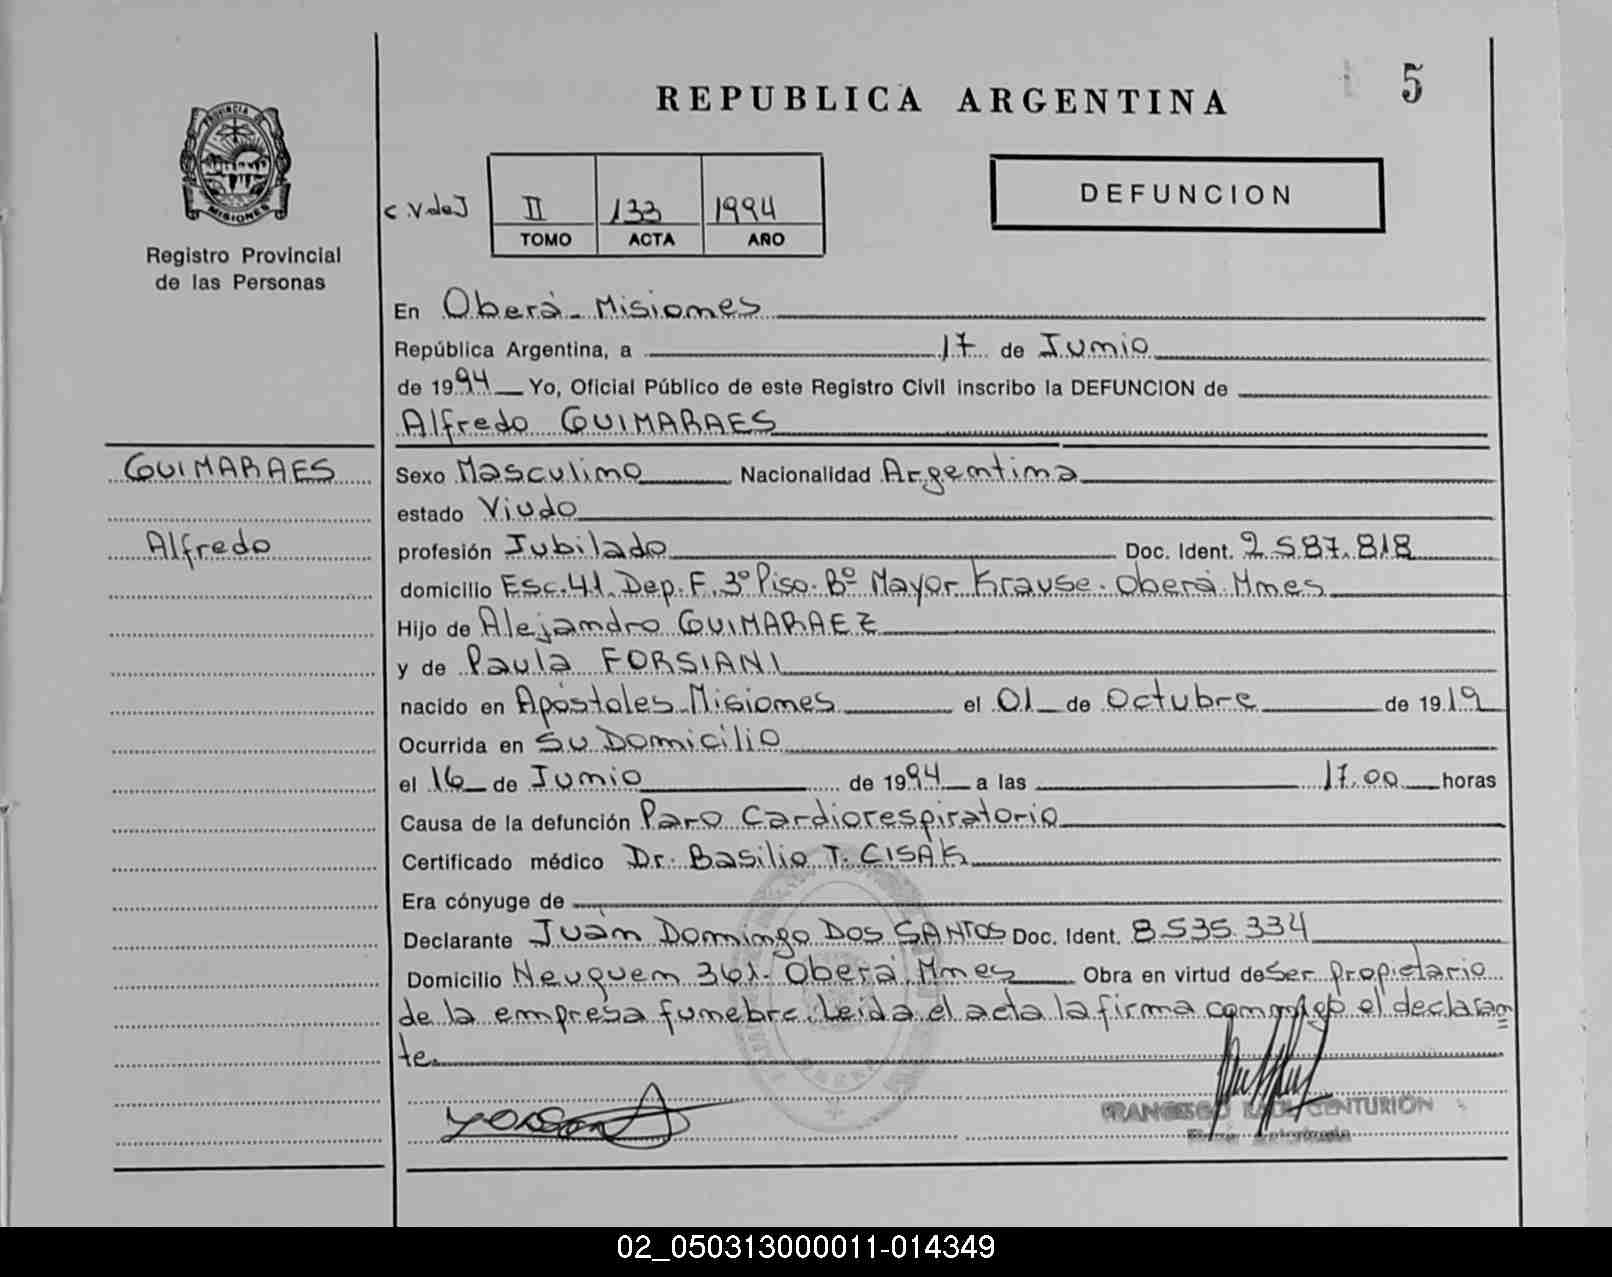 REPUBLICA ARGENTINA
5
PROVINCIA DE
MISIONES
Registro Provincial
de las Personas
C.V.deJ
II 133 1994
TOMO ACTA AÑO
DEFUNCION
En Oberá - Misiones
República Argentina, a 17 de Junio
de 1994 Yo, Oficial Público de este Registro Civil inscribo la DEFUNCION de
Alfredo GUIMARAES
GUIMARAES
Alfredo
Sexo Masculino Nacionalidad Argentina
estado Viudo
profesión Jubilado Doc. Ident. 2.587.818
domicilio Esc. 41. Dep. F. 3º Piso. Bº Mayor Krause. Oberá. Mnes
Hijo de Alejandro GUIMARAEZ
y de Paula FORSIANI
nacido en Apóstoles Misiones el 01 de Octubre de 1919
Ocurrida en Su Domicilio
el 16 de Junio de 1994 a las 17.00 horas
Causa de la defunción Paro Cardiorespiratorio
Certificado médico Dr. Basilio T. CISAK
Era cónyuge de
Declarante Juan Domingo DOS SANTOS Doc. Ident. 8.535.334
Domicilio Neuquen 361. Oberá Mnes Obra en virtud de Ser propietario
de la empresa funebre. Leida el acta la firma conmigo el declaran
te.
FRANCISCO RAUL CENTURIÓN
02_050313000011-014349